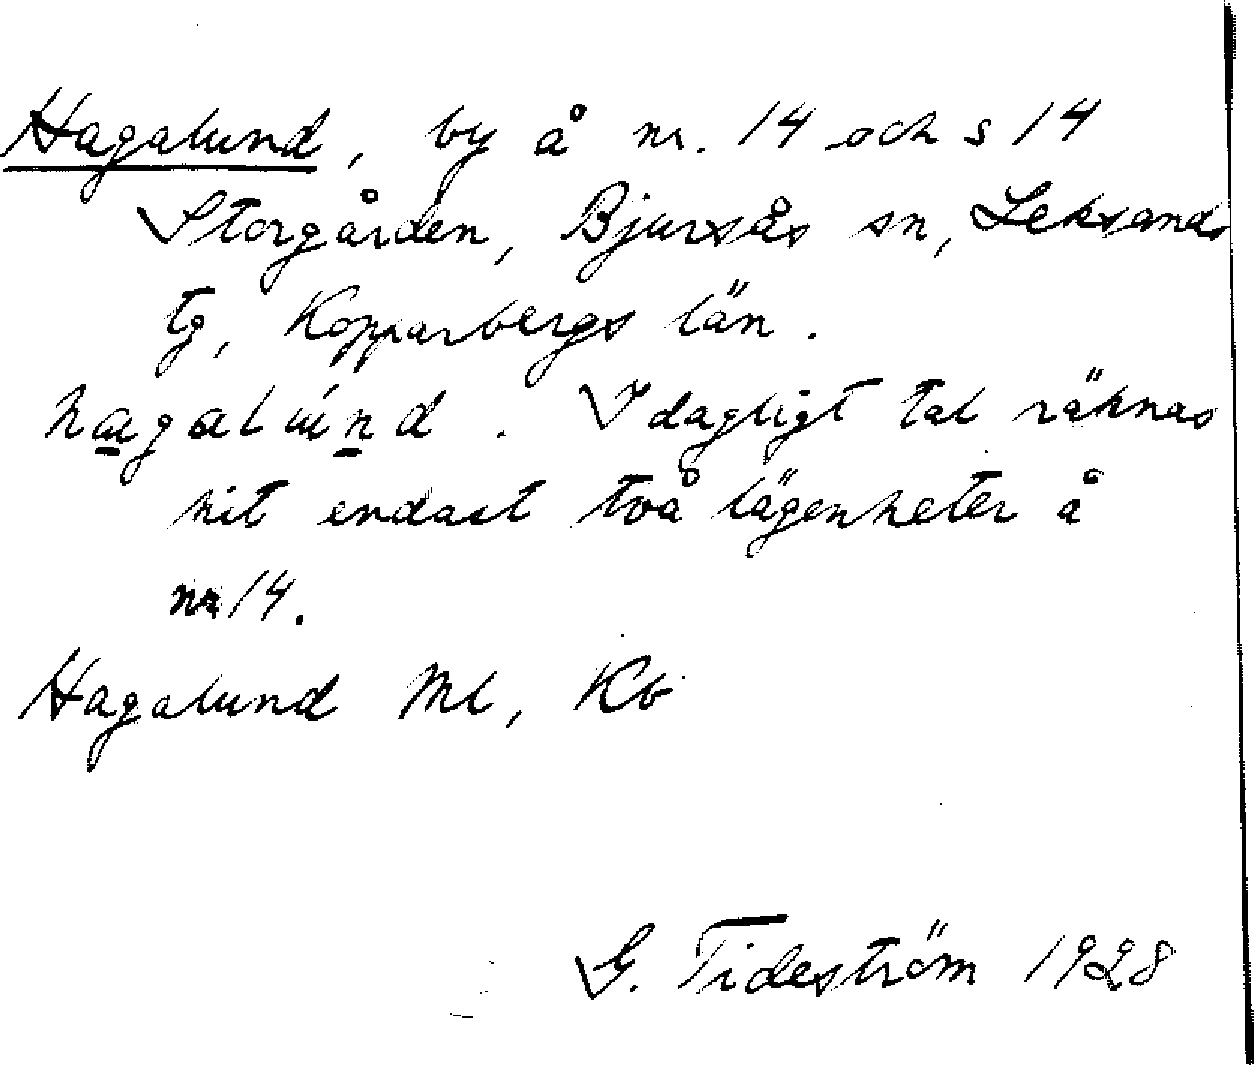 Hagalund, by å nr. 14 och s 14
Storgården, Bjursås sn, Leksands
tg, Kopparbergs län.
hagalúnd. I dagligt tal räknas
hit endast två lägenheter å
nr 14.
Hagalund Ml, Kb
G. Tideström 1928